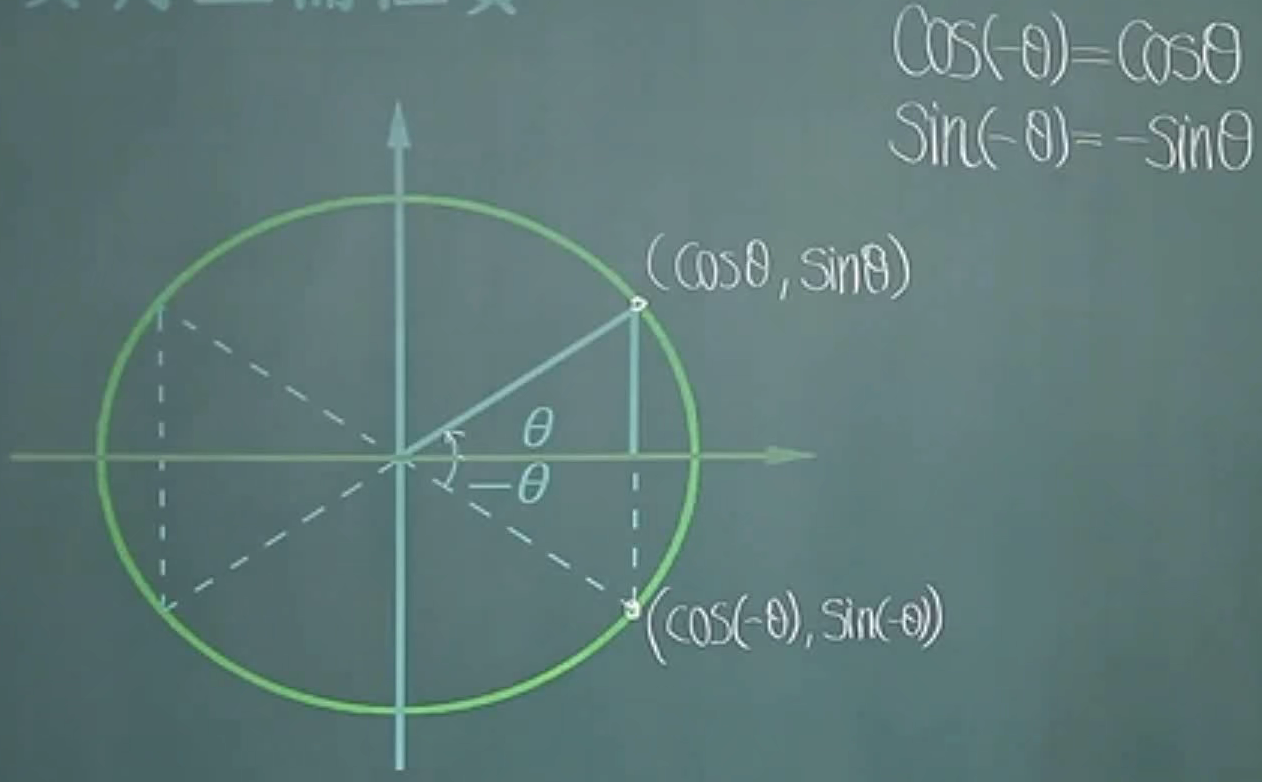 Cos(-θ)=Cosθ
Sin(-θ)=-Sinθ
(Cosθ, Sinθ)
θ
-θ
(cos(-θ), Sin(-θ))